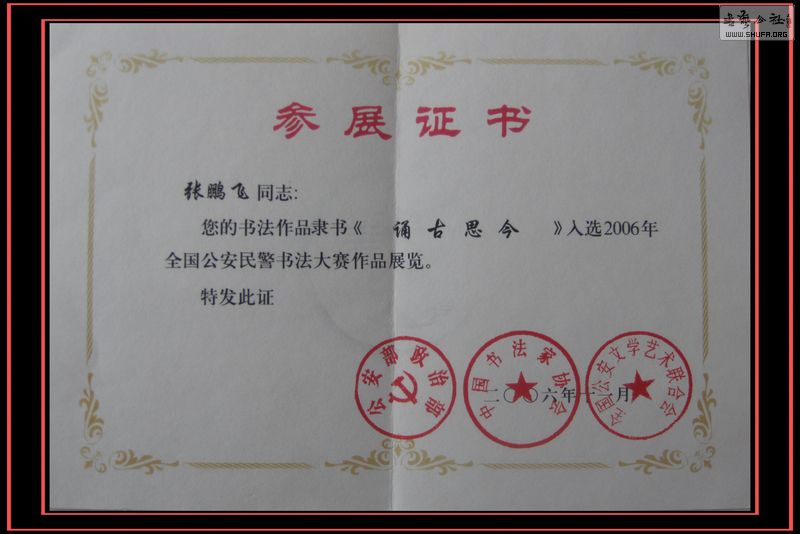 书法公社
WWW.SHUFA.ORG
参展证书
张鹏飞同志:
您的书法作品隶书《 诵古思今 》入选2006年
全国公安民警书法大赛作品展览。
特发此证
公安部政治部
中国书法家协会
全国公安文学艺术联合会
二〇〇六年十一月